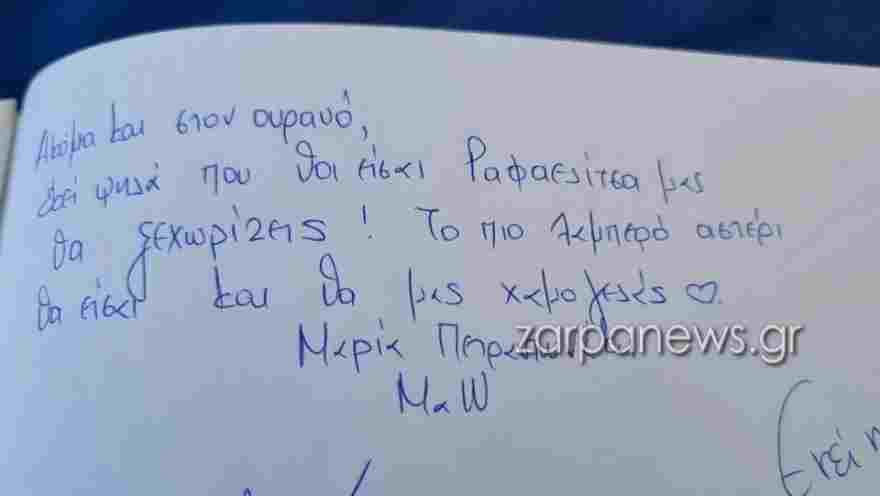 Ακόμα και στον ουρανό,
εκεί ψηλά που θα είσαι Ραφαελίτσα μας
θα ξεχωρίζεις! Το πιο λαμπερό αστέρι
θα είσαι και θα μας χαμογελάς ♡.
zarpanews.gr
Μαρία
ΜαΨ